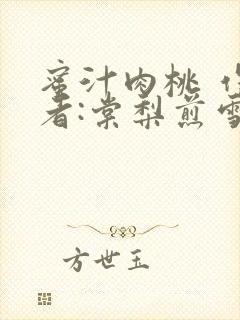 蜜汁肉桃 作
者:棠梨煎雪
方世玉